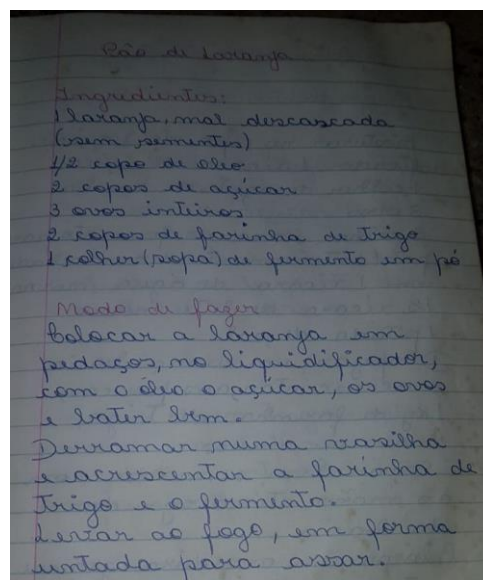 Pão de Laranja
Ingredientes:
1 laranja, mal descascada
(sem sementes)
1/2 copo de óleo
2 copos de açúcar
3 ovos inteiros
2 copos de farinha de trigo
1 colher (sopa) de fermento em pó
Modo de fazer
Colocar a laranja em
pedaços, no liquidificador,
com o óleo o açúcar, os ovos
e bater bem.
Derramar numa vasilha
e acrescentar a farinha de
trigo e o fermento.
Levar ao fogo, em forma
untada para assar.